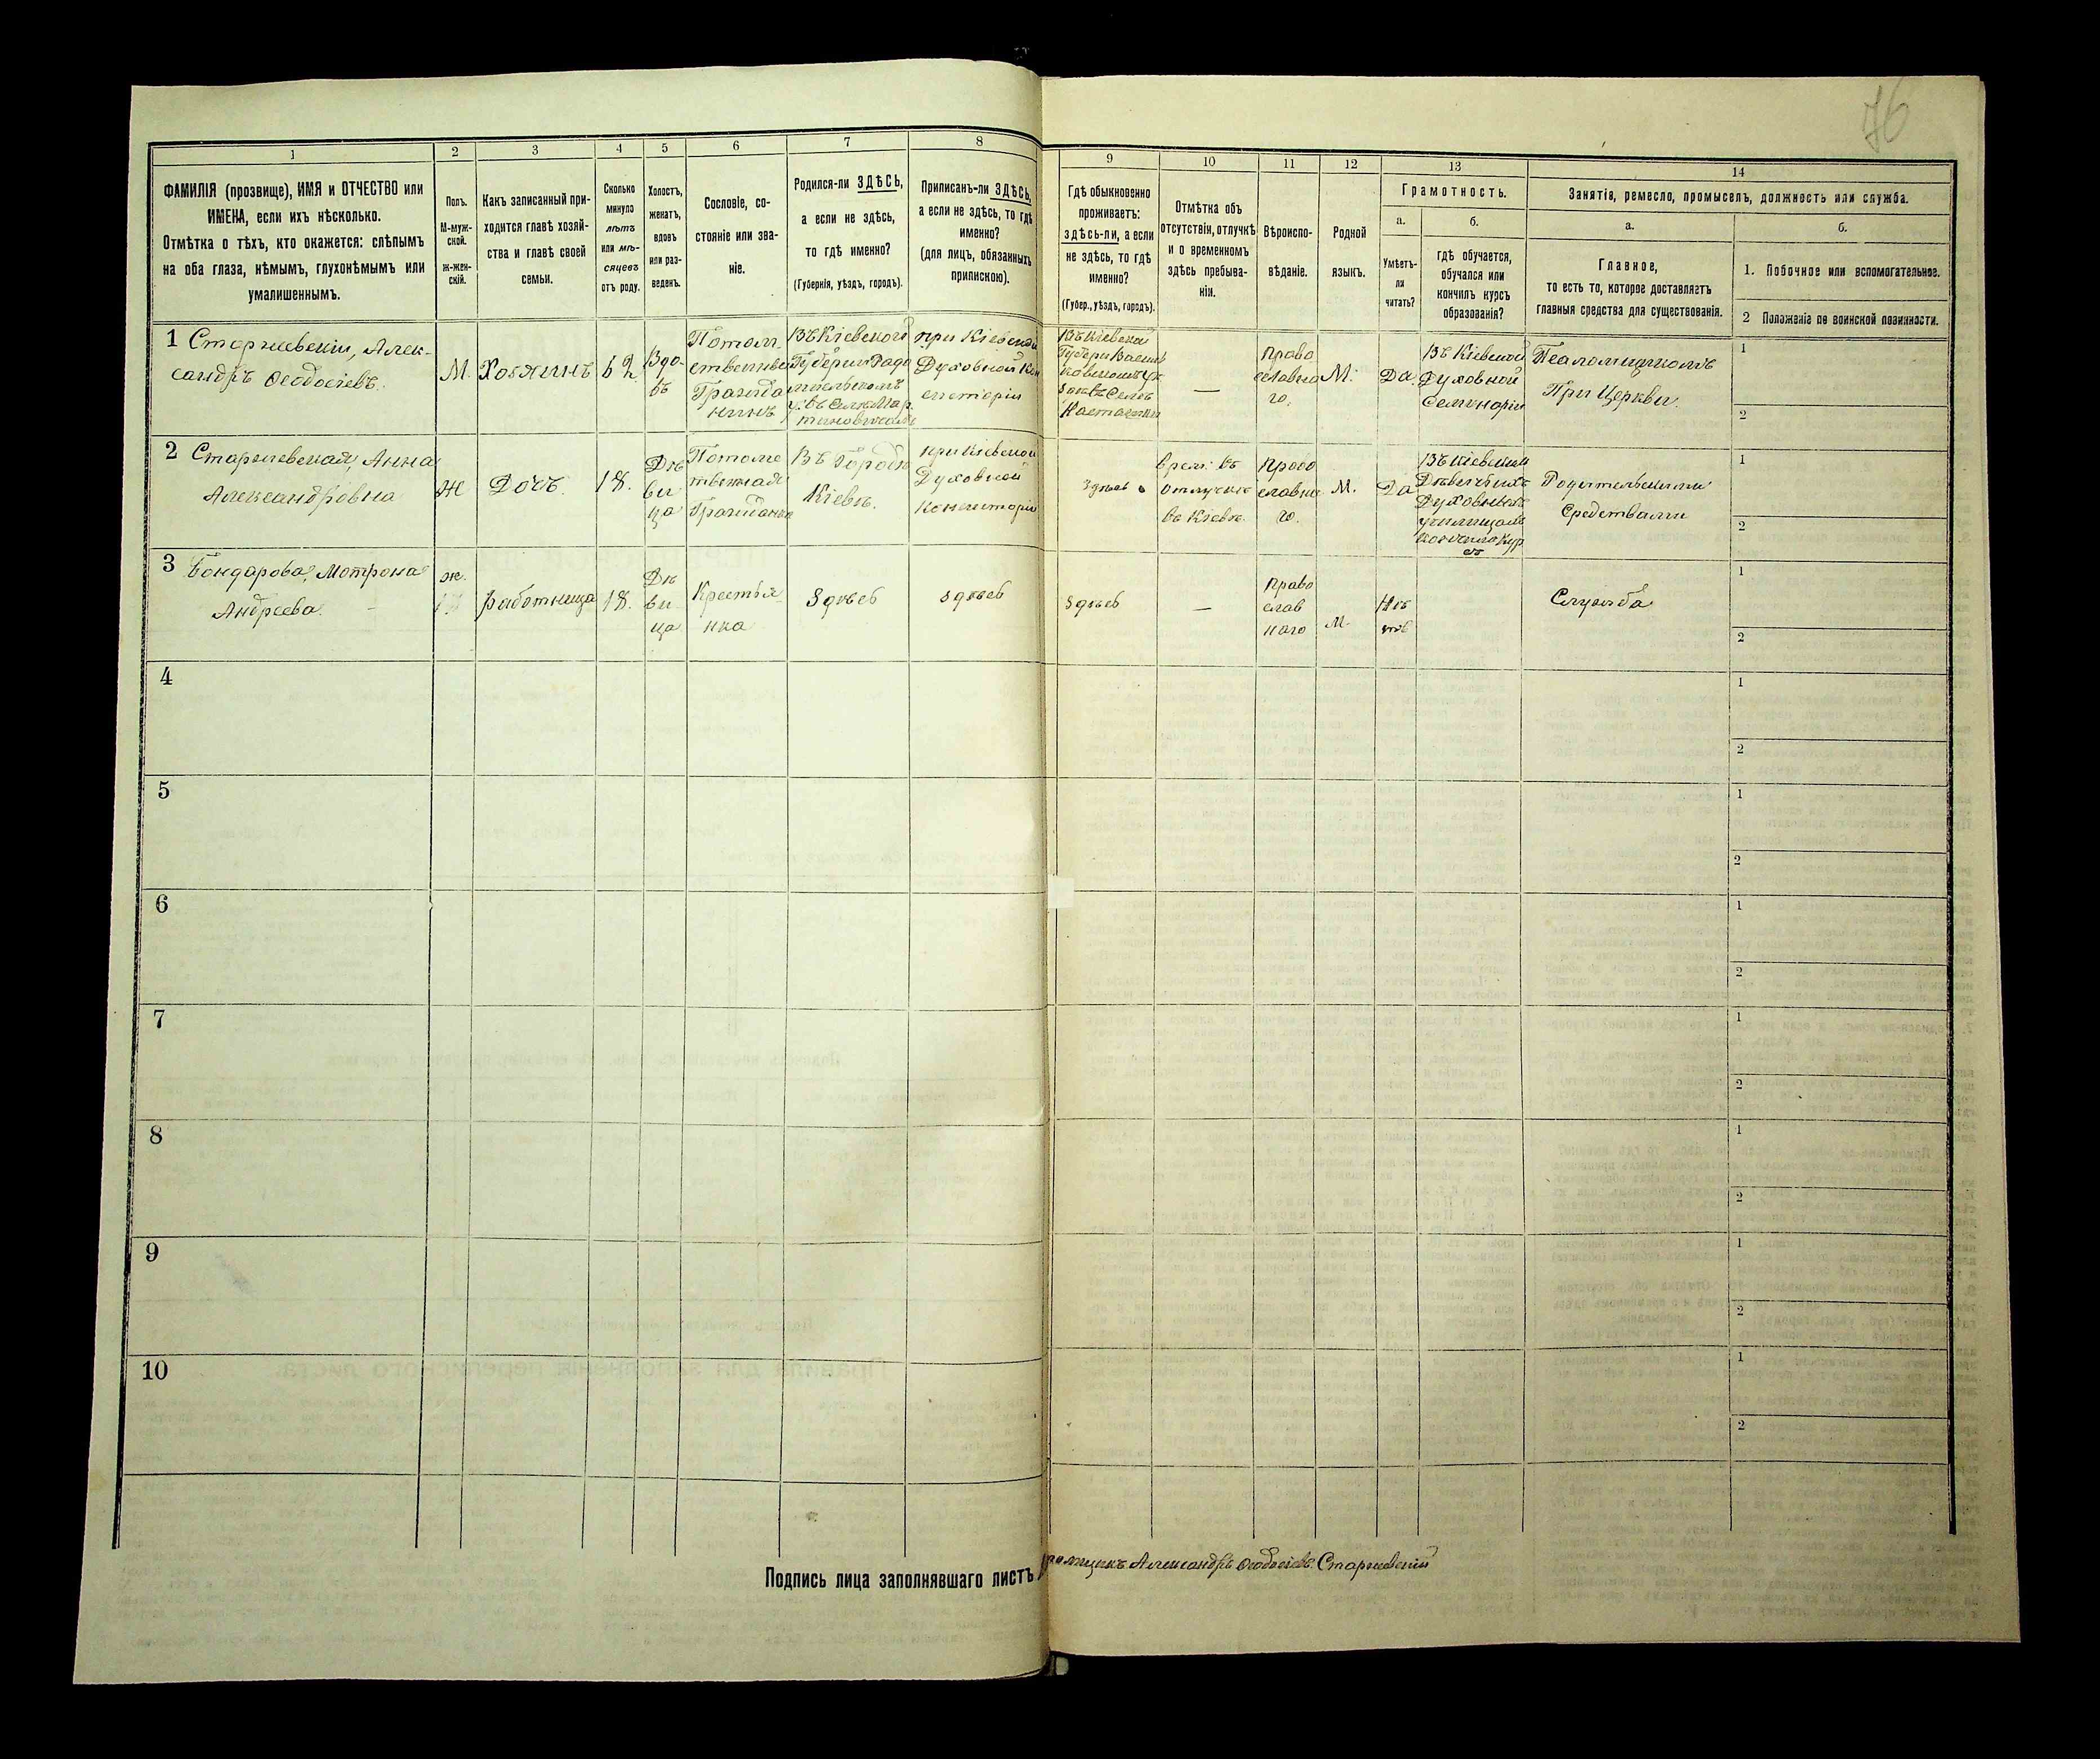 76
1
2
3
4
5
6
7
8
9
10
11
12
13
14
ФАМИЛІЯ (прозвище), ИМЯ и ОТЧЕСТВО или
ИМЕНА, если ихъ нѣсколько.
Отмѣтка о тѣхъ, кто окажется: слѣпымъ
на оба глаза, нѣмымъ, глухонѣмымъ или
умалишеннымъ.
Полъ.
М-муж-
ской.
ж-жен-
скій.
Какъ записанный при-
ходится главѣ хозяй-
ства и главѣ своей
семьи.
Сколько
минуло
лѣтъ
или мѣ-
сяцевъ
отъ роду.
Холостъ,
женатъ,
вдовъ
или раз-
веденъ.
Сословіе, со-
стояніе или зва-
ніе.
Родился-ли ЗДѢСЬ,
а если не здѣсь,
то гдѣ именно?
(Губернія, уѣздъ, городъ).
Приписанъ-ли ЗДѢСЬ,
а если не здѣсь, то гдѣ
именно?
(для лицъ, обязанныхъ
припискою).
Гдѣ обыкновенно
проживаетъ:
здѣсь-ли, а если
не здѣсь, то гдѣ
именно?
(Губер., уѣздъ, городъ).
Отмѣтка объ
отсутствіи, отлучкѣ
и о временномъ
здѣсь пребыва-
ніи.
Вѣроиспо-
вѣданіе.
Родной
языкъ.
Грамотность.
а.
б.
Умѣетъ-
ли
читать?
гдѣ обучается,
обучался или
кончилъ курсъ
образованія?
Занятія, ремесло, промыселъ, должность или служба.
а.
б.
Главное,
то есть то, которое доставляетъ
главныя средства для существованія.
1. Побочное или вспомогательное.
2 Положеніе по воинской повинности.
1 Старжевскій, Алек-
сандръ Ѳеодосіевъ.
М.
Хозяинъ
62
Вдо-
въ
Потом-
ственный
Гражда
нинъ
Въ Кіевской
Губерніи Радо
мысльскомъ
у. въ Селѣ Мар
тиновичахъ
при Кіевской
Духовной Кон
систоріи
Въ Кіевской
—
Право
славна
го.
М.
Да
Въ Кіевской
Духовной
Семинаріи
Псаломщикомъ
При Церкви.
1
2
2 Старжевская, Анна
Александровна
Ж
Дочь.
18.
Дѣ
ви
ца
Потомс
твенная
Гражданка
Въ Городѣ
Кіевѣ.
при Кіевской
Духовной
Консисторіи
Здѣсь
Врем: въ
отлучкѣ
въ Кіевѣ.
Право
славна
го.
М.
Да
Въ Кіевскомъ
Духовномъ
училищѣ
кончила кур
съ
Родительскими
Средствами
1
2
3 Бондарова, Мотрона
Андреева
ж.
работница
18.
Дѣ
ви
ца
Крестья
нка
Здѣсь
здѣсь
здѣсь
—
Право
слав
наго
М.
Нѣ
тъ
Служба
1
2
4
1
2
5
1
2
6
1
2
7
1
2
8
1
2
9
1
2
10
1
2
Подпись лица заполнявшаго листъ Александръ Ѳеодосіевъ Старжевскій